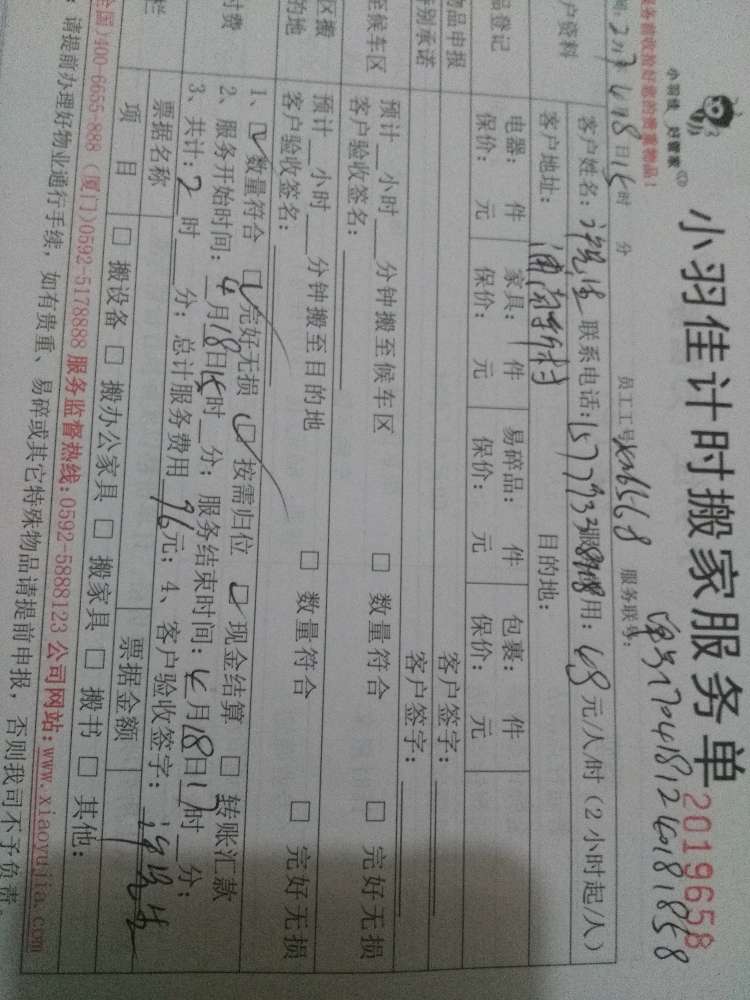 小羽佳 好管家
小羽佳计时搬家服务单
2019658
服务前收拾好您的贵重物品!
单号1704181240181858
2017年4月18日15时 分 员工工号 服务联号:
户资料
客户姓名: 联系电话: 用:48元/人/时(2小时起/人)
客户地址: 目的地:
品登记
电器: 件 家具: 件 易碎品: 件 包裹: 件
保价: 元 保价: 元 保价: 元 保价: 元
物品申报 客户签字:
特别承诺 客户签字:
至候车区
预计__小时__分钟搬至候车区 □ 数量符合 □ 完好无损
客户验收签名:
区搬
的地
预计__小时__分钟搬至目的地 □ 数量符合 □ 完好无损
客户验收签名:
付费
1、☑数量符合 ☑完好无损 ☑按需归位 ☑现金结算 □ 转账汇款
2、服务开始时间:4月18日15时__分;服务结束时间:4月18日17时__分;
3、共计:2时__分;总计服务费用 96元;4、客户验收签字:
栏
票据名称 票据金额
项 目 □ 搬设备 □ 搬办公家具 □ 搬家具 □ 搬书 □ 其他:
全国)400-6655-888 (厦门)0592-5178888 服务监督热线:0592-5888123 公司网站:www.xiaoyujia.com
:请提前办理好物业通行手续,如有贵重、易碎或其它特殊物品请提前申报,否则我司不予负责。